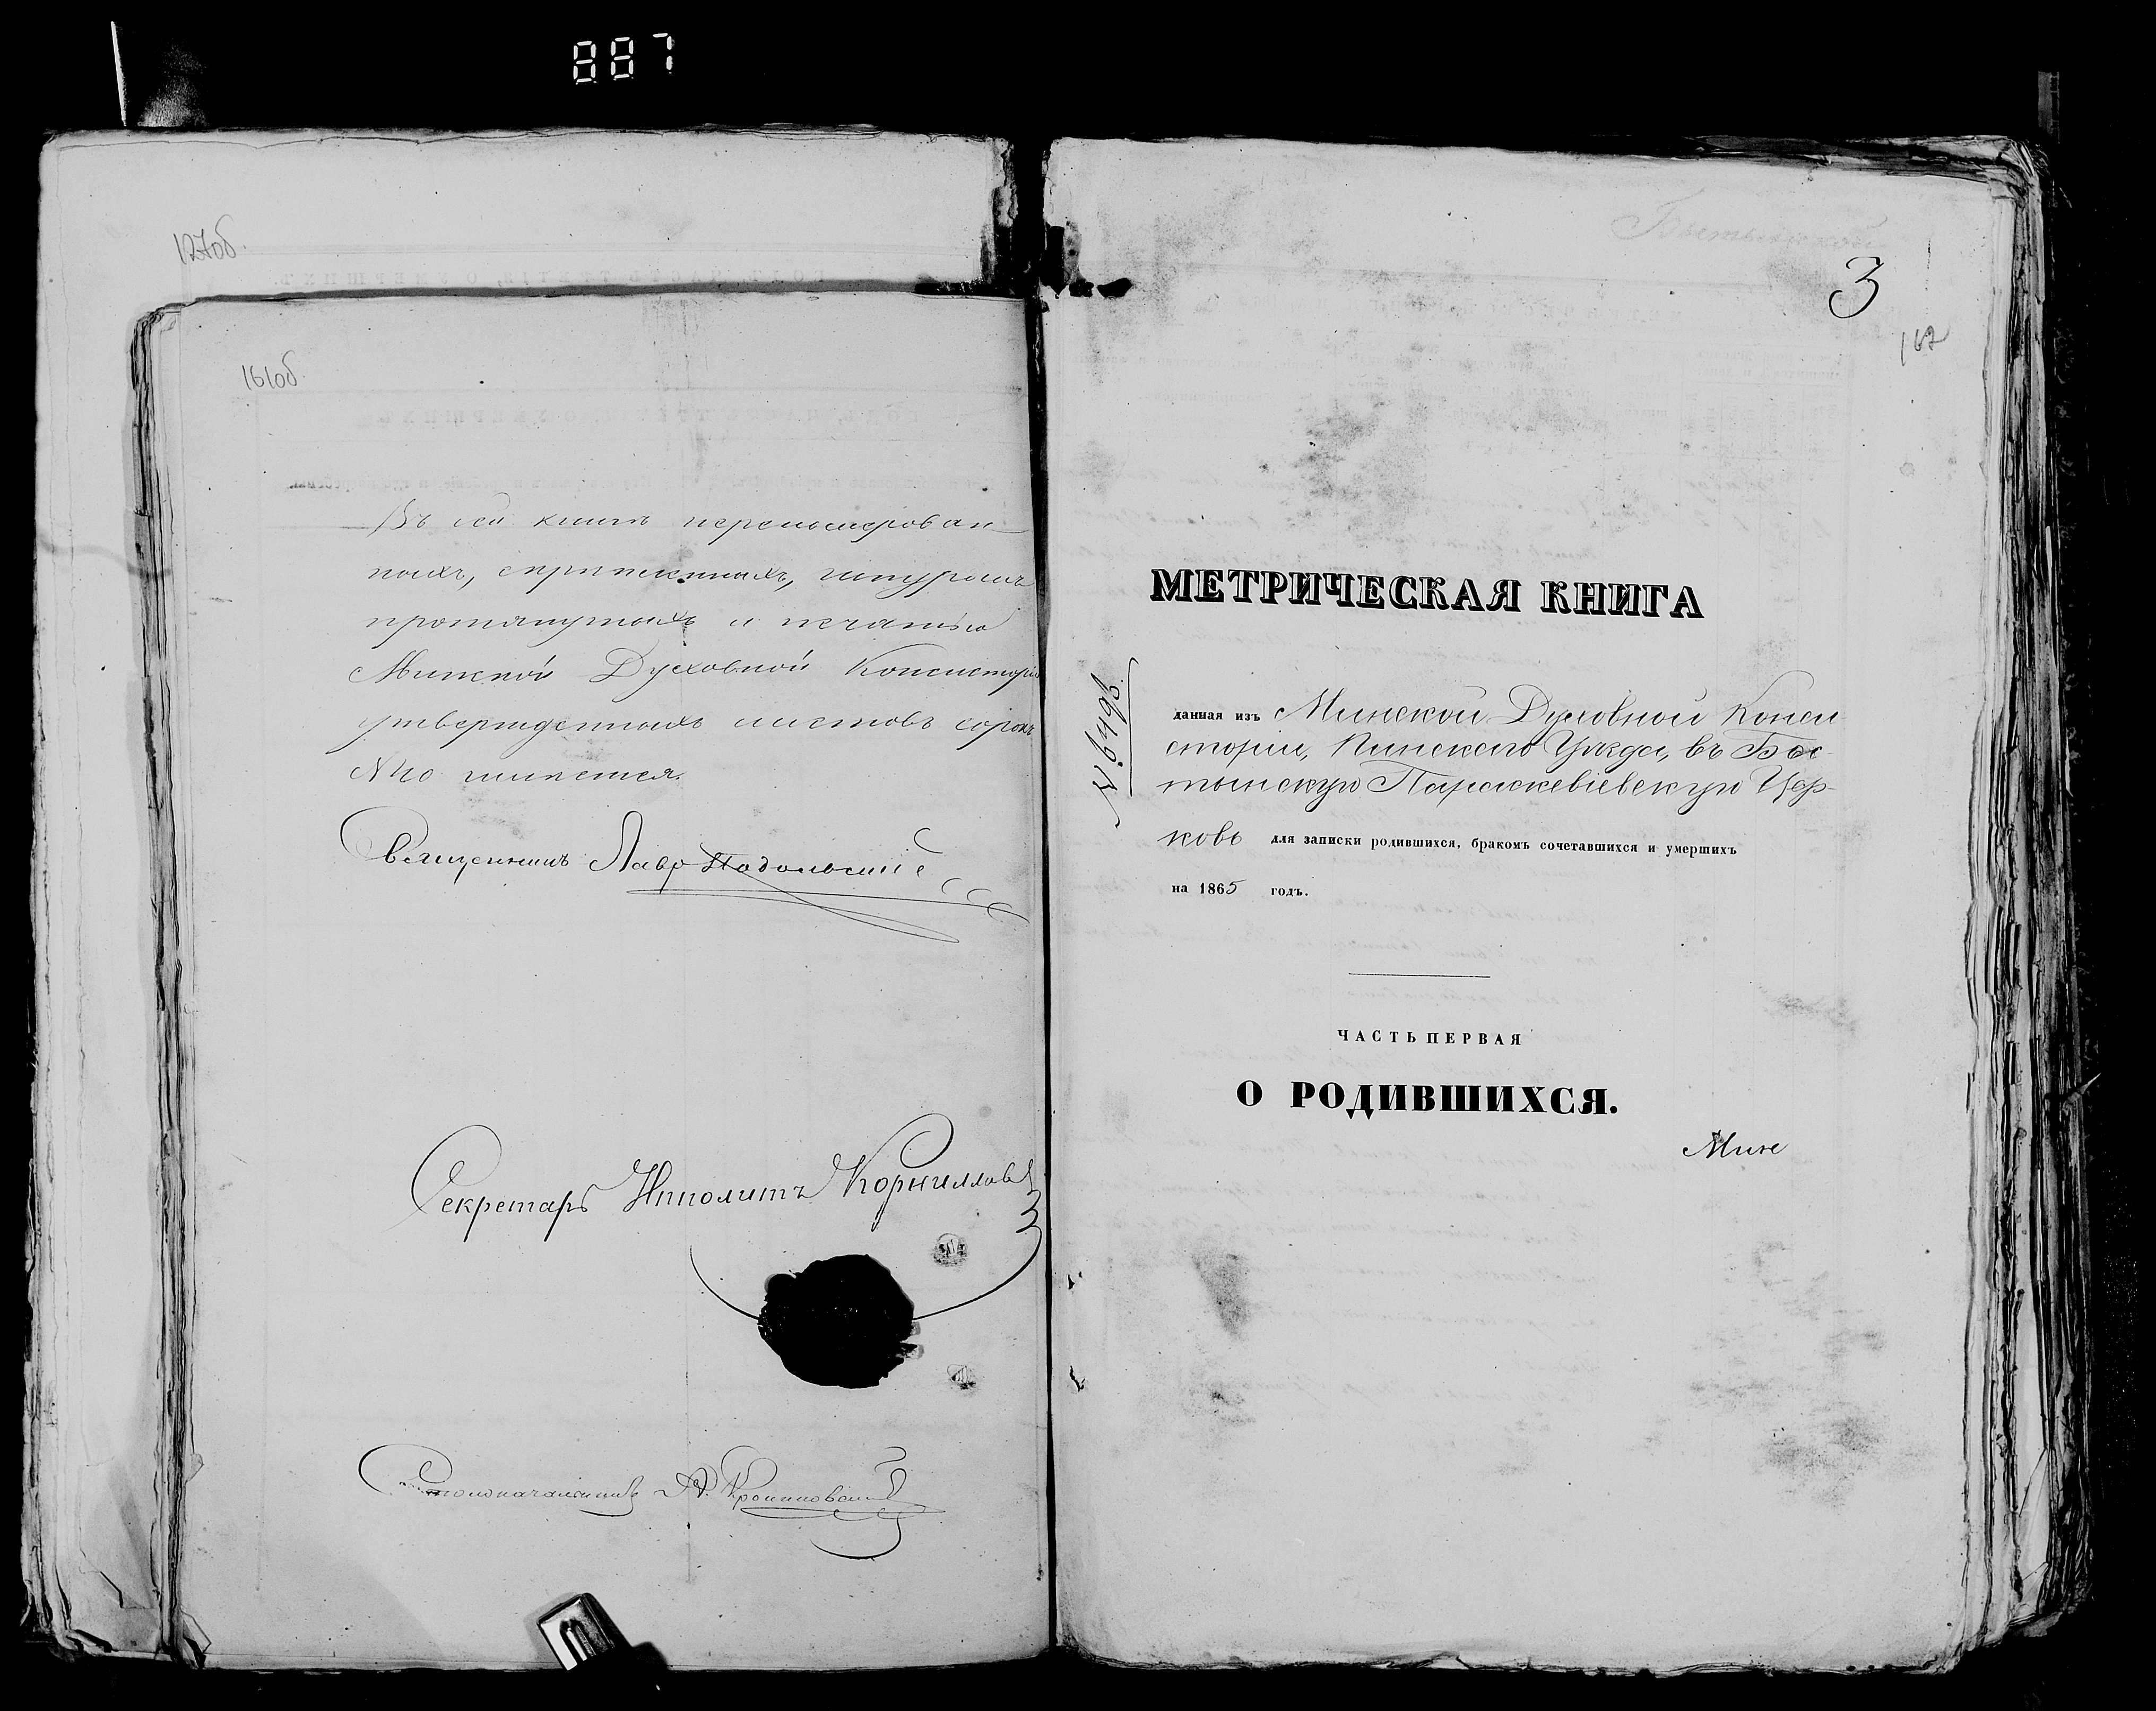 887
127об.
161об.
Въ сей книгѣ перенумерован-
ныхъ, скрѣпленныхъ, шнуромъ
протянутыхъ и печатью
Минской Духовной Консисторіи
утвержденныхъ листовъ сорокъ
№ 40 имѣется.
Священникъ Лавр Подольскій
Секретарь Ипполитъ Корниллов
Столоначальникъ
Бостынской
3
162
МЕТРИЧЕСКАЯ КНИГА
данная изъ Минской Духовной Конси
сторіи, Пинскаго Уѣзда, въ Бос-
тынскую Параскевіевскую Цер-
ковь для записки родившихся, бракомъ сочетавшихся и умершихъ
на 1865 годъ.
ЧАСТЬ ПЕРВАЯ
О РОДИВШИХСЯ.
Мин